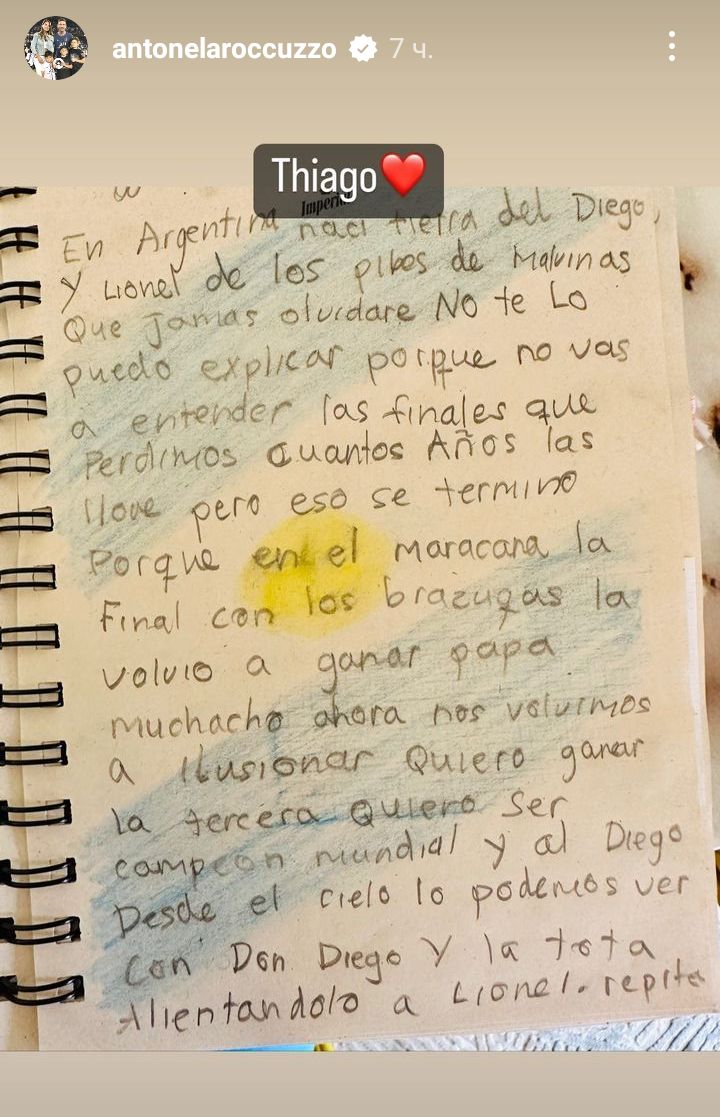 antonelaroccuzzo 7 ч.
Thiago❤️
En Argentina naci tierra del Diego,
y Lionel de los pibes de Malvinas
Que jamas olvidare NO te Lo
puedo explicar porque no vas
a entender las finales que
Perdimos cuantos Años las
llore pero eso se termino
Porque en el maracana la
Final con los brazugas la
volvio a ganar papa
muchacho ahora nos volvimos
a Ilusionar Quiero ganar
la tercera Quiero Ser
campeon mundial y al Diego
Desde el cielo lo podemos ver
Con Don Diego Y la tota
Alientandolo a Lionel. repita